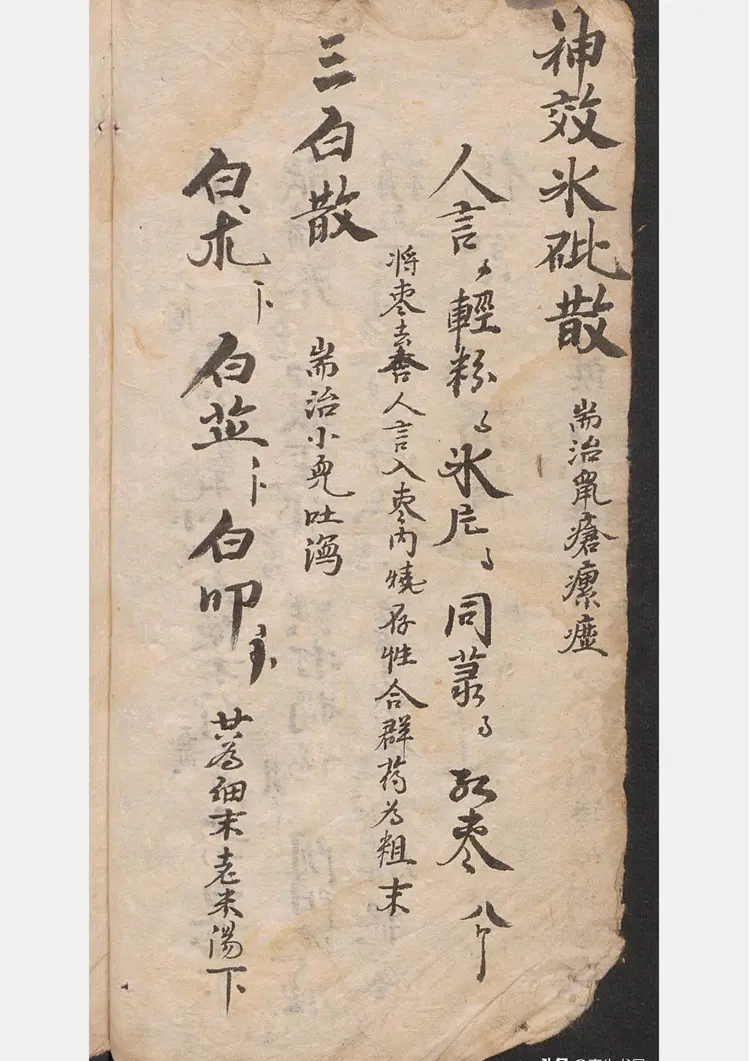 神效氷砒散
耑治鼠瘡瘰癧
人言 輕粉 氷片 同菉 红枣 八个
将枣去核人言入枣内燒存性合群药为粗末
三白散
耑治小兒吐瀉
白朮 白芷 白叩
共為细末老米湯下